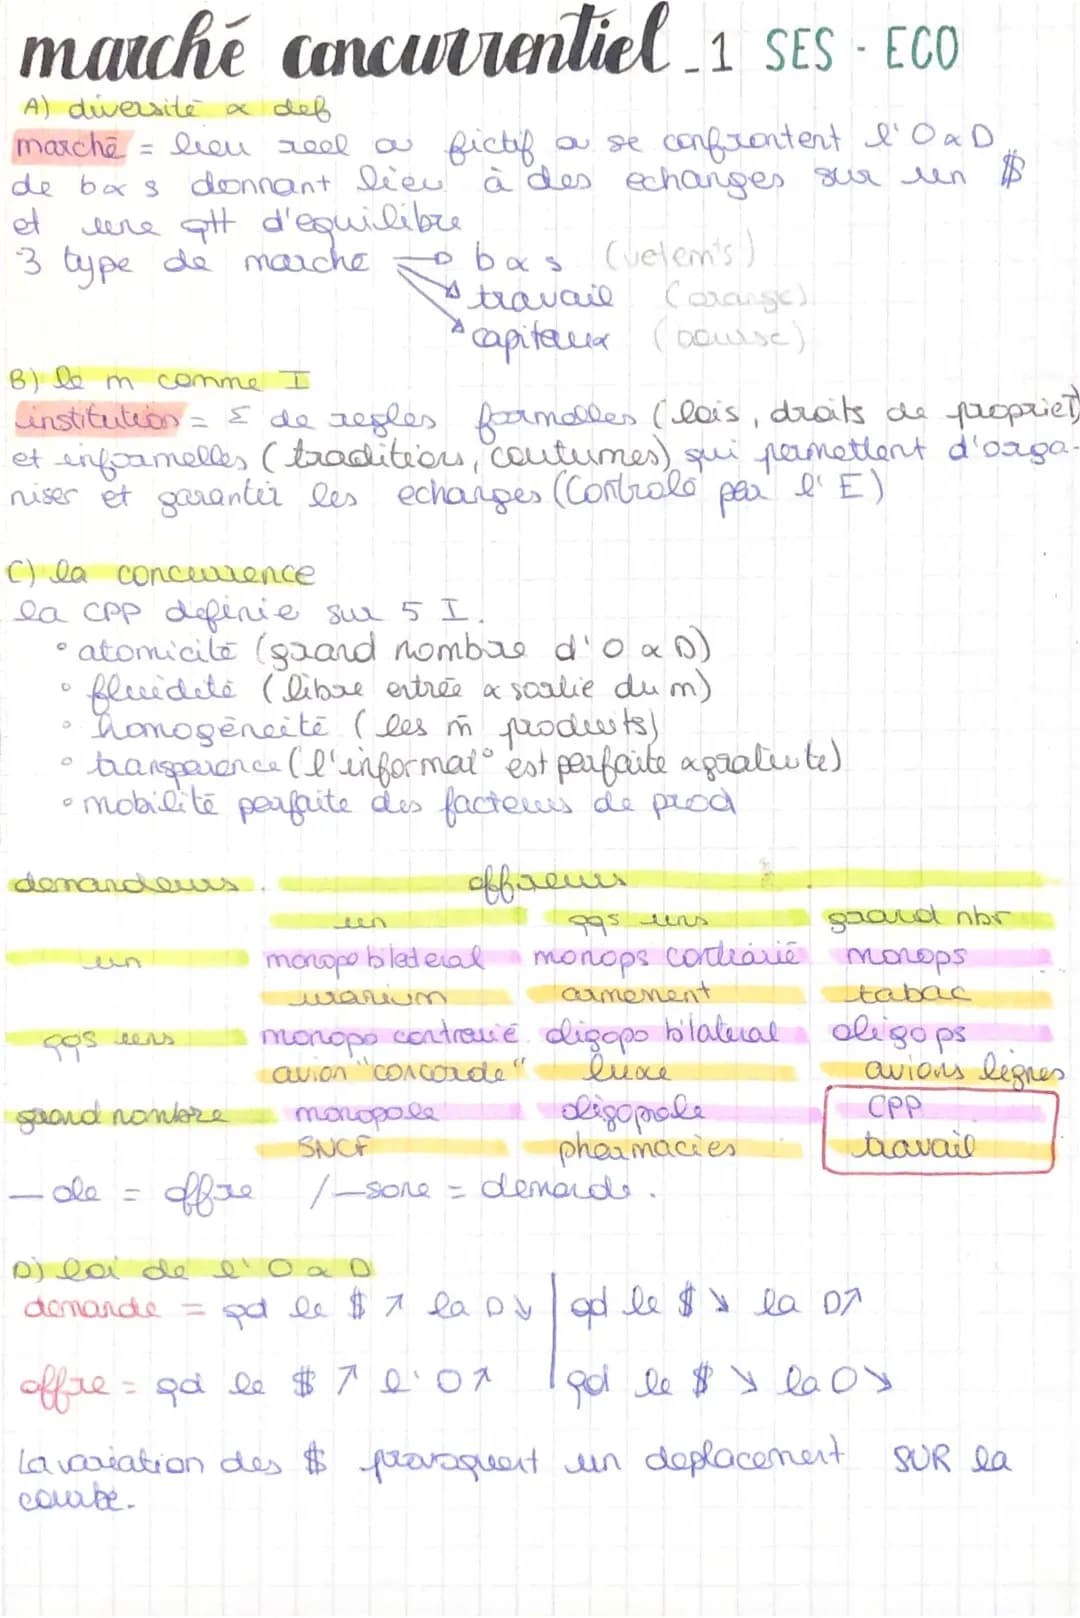 marché concurrentiel _1 SES - ECO
A) diversité & def
marché = lieu reel ou fictif ou se confrontent l'O & D
de b&s donnant lieu à des echanges sur un $
et une qtt d'equilibre
3 type de marche → b&s (vetem's)
travail (orange)
capitaux (bourse)
B) le m comme I
institution = Σ de regles formelles (lois, droits de propriet)
et informelles (tradition, coutumes) qui permettent d'orga-
niser et garantir les echanges (Controle par l'E)
C) la concurrence
la CPP definie sur 5 I.
• atomicité (grand nombre d'O & D)
• fluidité (libre entrée & sortie du m)
• homogénéité (les m̂ produits)
• transparence (l'informat° est parfaite & gratuite)
• mobilité parfaite des facteurs de prod
demandeurs offreurs
un qqs uns grand nbr
un monopo bilateral monops contrarié monops
uranium armement tabac
qqs uns monopo contrarié oligopo bilateral oligops
avion "concorde" luxe avions lignes
grand nombre monopole oligopole CPP
SNCF pharmacies travail
– ole = offre / –sone = demande.
D) loi de l'O & D
demande = qd le $ ↗ la D ↘ | qd le $ ↘ la D↗
offre = qd le $ ↗ l'O↗ | qd le $ ↘ la O↘
La variation des $ provoquent un deplacement SUR la
courbe.